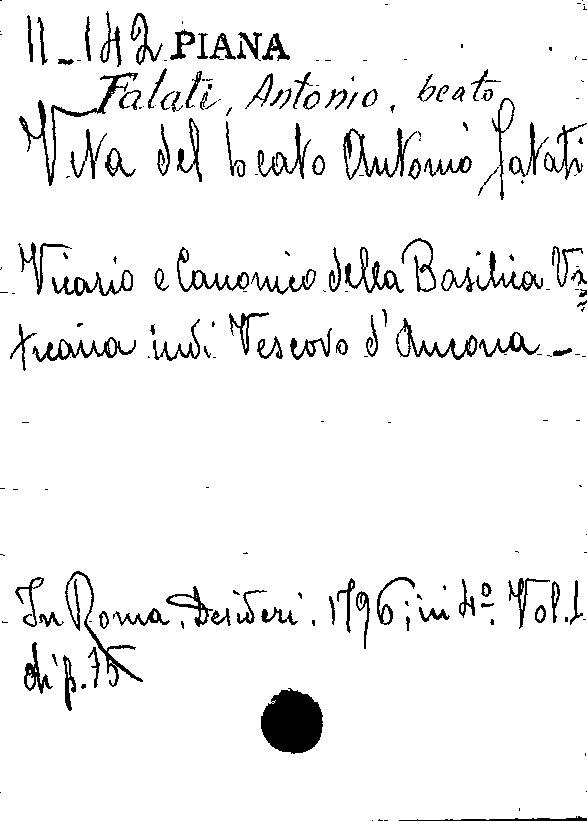 II-142 PIANA
Fatati, Antonio, beato
Vita del beato Antonio Fatati
Vicario e Canonico della Basilica Va=
ticana indi Vescovo d'Ancona -
In Roma. Desideri. 1796; in 4º. Vol. 1
di p. 75